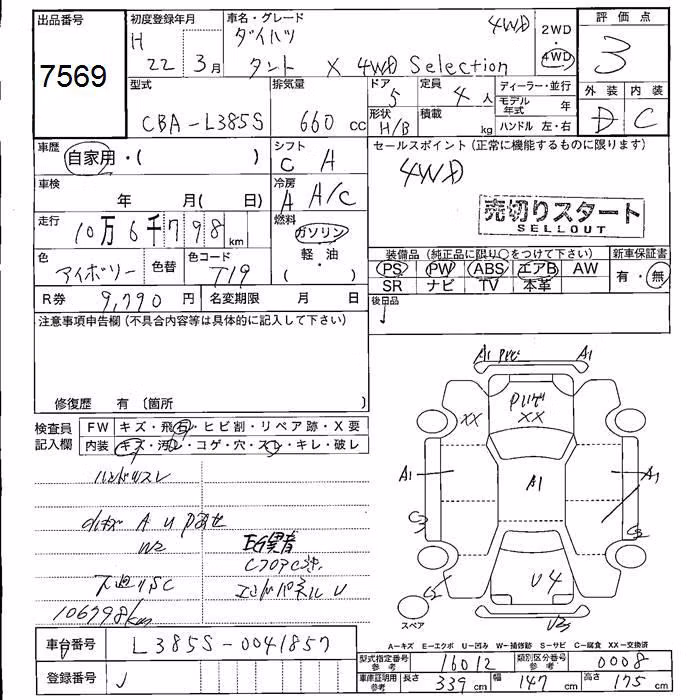 出品番号
7569
初度登録年月
H 22 年 3 月
車名・グレード
ダイハツ 4WD
タント X 4WD Selection
2WD
4WD
評価点
3
外装 内装
D C
型式
CBA-L385S
排気量
660 cc
ドア
5
定員
4 人
形状
H/B
積載
kg
ディーラー・並行
モデル年式 年
ハンドル 左・右
車歴
自家用・( )
シフト
C A
セールスポイント (正常に機能するものに限ります)
4WD
売切りスタート
SELLOUT
車検
年 月( 日)
冷房
A A/C
走行
10万6千798 km
燃料
ガソリン
軽・油
( )
色
アイボリー
色替
色コード
T19
装備品 (純正品に限り○をつけて下さい)
新車保証書
PS PW ABS エアB AW
SR ナビ TV 本革
有・無
R券 9,790 円
名変期限 月 日
後日品
注意事項申告欄 (不具合内容等は具体的に記入して下さい)
修復歴 有 〔箇所 〕
検査員
記入欄
FW キズ・飛石・ヒビ割・リペア跡・X要
内装 キズ・汚レ・コゲ・穴・スレ・キレ・破レ
ハンドルスレ
W2
106798km
A1
A1
XX
XX
A1
A1
A1
U4
スペア
A=キズ E=エクボ U=凹み W=補修跡 S=サビ C=腐食 XX=交換済
車台番号 L385S-0041857
登録番号
型式指定番号
参考
16012
類別区分番号
参考
0008
車庫証明用
参考
長さ 339 cm
幅 147 cm
高さ 175 cm